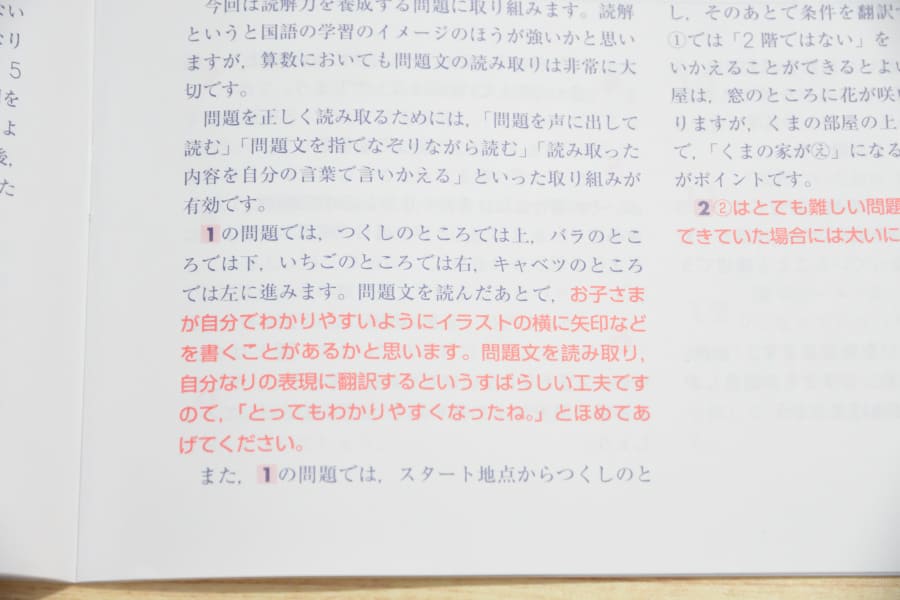 ない
なり
5
を
よ
後，
た
今回は読解力を養成する問題に取り組みます。読解
というと国語の学習のイメージのほうが強いかと思い
ますが，算数においても問題文の読み取りは非常に大
切です。
問題を正しく読み取るためには，「問題を声に出して
読む」「問題文を指でなぞりながら読む」「読み取った
内容を自分の言葉で言いかえる」といった取り組みが
有効です。
1の問題では，つくしのところでは上，バラのとこ
ろでは下，いちごのところでは右，キャベツのところ
では左に進みます。問題文を読んだあとで，お子さま
が自分でわかりやすいようにイラストの横に矢印など
を書くことがあるかと思います。問題文を読み取り，
自分なりの表現に翻訳するというすばらしい工夫です
ので，「とってもわかりやすくなったね。」とほめてあ
げてください。
また，1の問題では，スタート地点からつくしのと
し，そのあとで条件を翻訳
①では「2階ではない」を
いかえることができるとよ
屋は，窓のところに花が咲
りますが，くまの部屋の上
で，「くまの家が㋓」になる
がポイントです。
2②はとても難しい問題
できていた場合には大いに